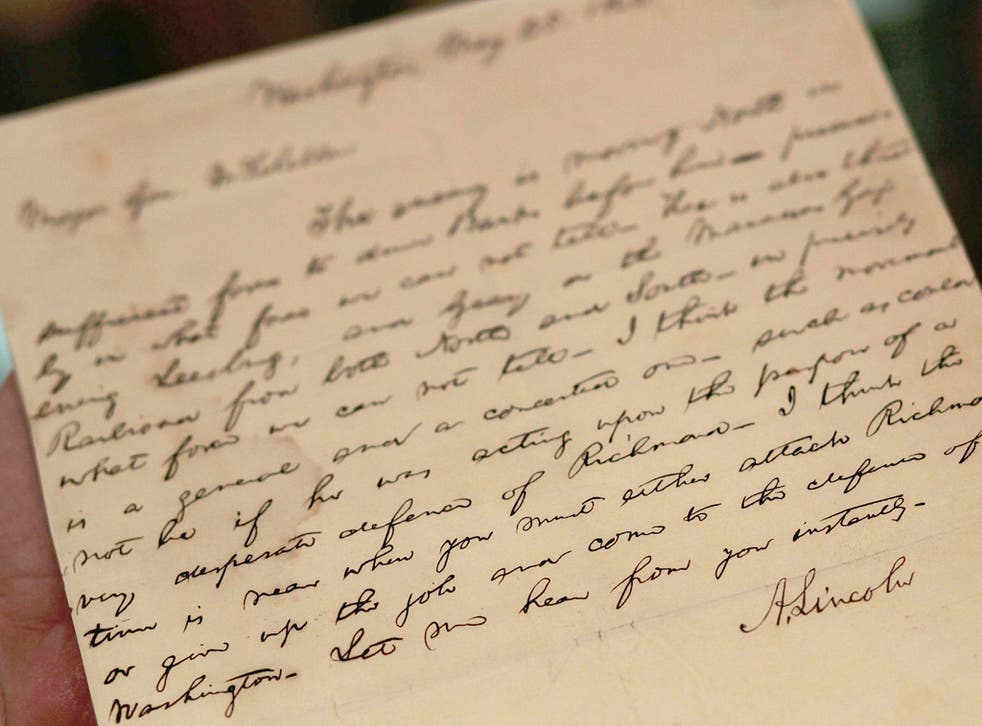 Washington, May 25.
Major Gen. McClellan
The enemy is moving North in
sufficient force to drive Banks before him — precise
ly in what force we can not tell— He is also threat
ening Leesburg, and Geary on the Manassas Gap
Railroad from both North and South— in precisely
what force we can not tell— I think the movemen
is a general and a concerted one— such as could
not be if he was acting upon the purpose of a
very desperate defence of Richmond— I think the
time is near when you must either attack Richmo
or give up the job and come to the defence of
Washington— Let me hear from you instantly—
A. Lincoln